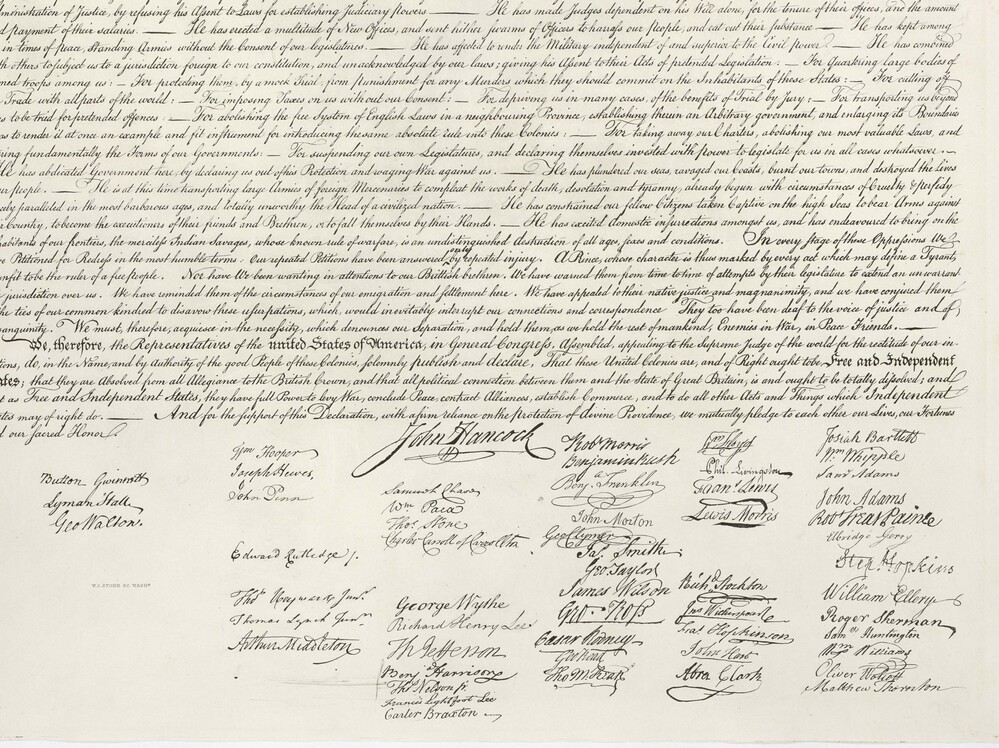 ministration of Justice, by refusing his Assent to Laws for establishing Judiciary powers — He has made Judges dependent on his Will alone, for the tenure of their offices, and the amount
d payment of their salaries. — He has erected a multitude of New Offices, and sent hither swarms of Officers to harrass our people, and eat out their substance. — He has kept among
in times of peace, Standing Armies without the Consent of our legislatures. — He has affected to render the Military independent of and superior to the Civil power. — He has combined
th others to subject us to a jurisdiction foreign to our constitution, and unacknowledged by our laws; giving his Assent to their Acts of pretended Legislation: — For Quartering large bodies of
med troops among us: — For protecting them, by a mock Trial, from punishment for any Murders which they should commit on the Inhabitants of these States: — For cutting off
Trade with all parts of the world: — For imposing Taxes on us without our Consent: — For depriving us in many cases, of the benefits of Trial by Jury: — For transporting us beyond
s to be tried for pretended offences — For abolishing the free System of English Laws in a neighbouring Province, establishing therein an Arbitrary government, and enlarging its Boundaries
as to render it at once an example and fit instrument for introducing the same absolute rule into these Colonies: — For taking away our Charters, abolishing our most valuable Laws, and
ring fundamentally the Forms of our Governments: — For suspending our own Legislatures, and declaring themselves invested with power to legislate for us in all cases whatsoever. —
He has abdicated Government here, by declaring us out of his Protection and waging War against us. — He has plundered our seas, ravaged our Coasts, burnt our towns, and destroyed the lives
ur people. — He is at this time transporting large Armies of foreign Mercenaries to compleat the works of death, desolation and tyranny, already begun with circumstances of Cruelty & perfidy
cely paralleled in the most barbarous ages, and totally unworthy the Head of a civilized nation. — He has constrained our fellow Citizens taken Captive on the high Seas to bear Arms against
r Country, to become the executioners of their friends and Brethren, or to fall themselves by their Hands. — He has excited domestic insurrections amongst us, and has endeavoured to bring on the
habitants of our frontiers, the merciless Indian Savages, whose known rule of warfare, is an undistinguished destruction of all ages, sexes and conditions. In every stage of these Oppressions We
e Petitioned for Redress in the most humble terms: Our repeated Petitions have been answered only by repeated injury. A Prince, whose character is thus marked by every act which may define a Tyrant,
nfit to be the ruler of a free people. Nor have We been wanting in attentions to our Brittish brethren. We have warned them from time to time of attempts by their legislature to extend an unwarrant
jurisdiction over us. We have reminded them of the circumstances of our emigration and settlement here. We have appealed to their native justice and magnanimity, and we have conjured them
the ties of our common kindred to disavow these usurpations, which, would inevitably interrupt our connections and correspondence They too have been deaf to the voice of justice and of
anguinity. We must, therefore, acquiesce in the necessity, which denounces our Separation, and hold them, as we hold the rest of mankind, Enemies in War, in Peace Friends. —
We, therefore, the Representatives of the united States of America, in General Congress, Assembled, appealing to the Supreme Judge of the world for the rectitude of our in-
tions, do, in the Name, and by Authority of the good People of these Colonies, solemnly publish and declare, That these United Colonies are, and of Right ought to be, Free and Independent
ates; that they are Absolved from all Allegiance to the British Crown, and that all political connection between them and the State of Great Britain, is and ought to be totally dissolved; and
t as Free and Independent States, they have full Power to levy War, conclude Peace, contract Alliances, establish Commerce, and to do all other Acts and Things which Independent
tes may of right do. — And for the support of this Declaration, with a firm reliance on the protection of divine Providence, we mutually pledge to each other our Lives, our Fortunes
d our sacred Honor.
John Hancock
Button Gwinnett
Lyman Hall
Geo Walton.
Wm Hooper
Joseph Hewes,
John Penn
Edward Rutledge /.
Thos Heyward Junr.
Thomas Lynch Junr.
Arthur Middleton
Samuel Chase
Wm Paca
Thos. Stone
Charles Carroll of Carrollton
George Wythe
Richard Henry Lee
Th Jefferson
Benj Harrison
Thos Nelson jr.
Francis Lightfoot Lee
Carter Braxton
Robt Morris
Benjamin Rush
Benj. Franklin
John Morton
Geo Clymer
Jas. Smith
Geo. Taylor
James Wilson
Geo. Ross
Caesar Rodney
Geo Read
Tho M:Kean
Wm Floyd
Phil. Livingston
Frans. Lewis
Lewis Morris
Richd. Stockton
Jno Witherspoon
Fras. Hopkinson
John Hart
Abra Clark
Josiah Bartlett
Wm. Whipple
Saml Adams
John Adams
Robt Treat Paine
Elbridge Gerry
Step. Hopkins
William Ellery
Roger Sherman
Saml Huntington
Wm Williams
Oliver Wolcott
Matthew Thornton
W.J. STONE SC. WASHN